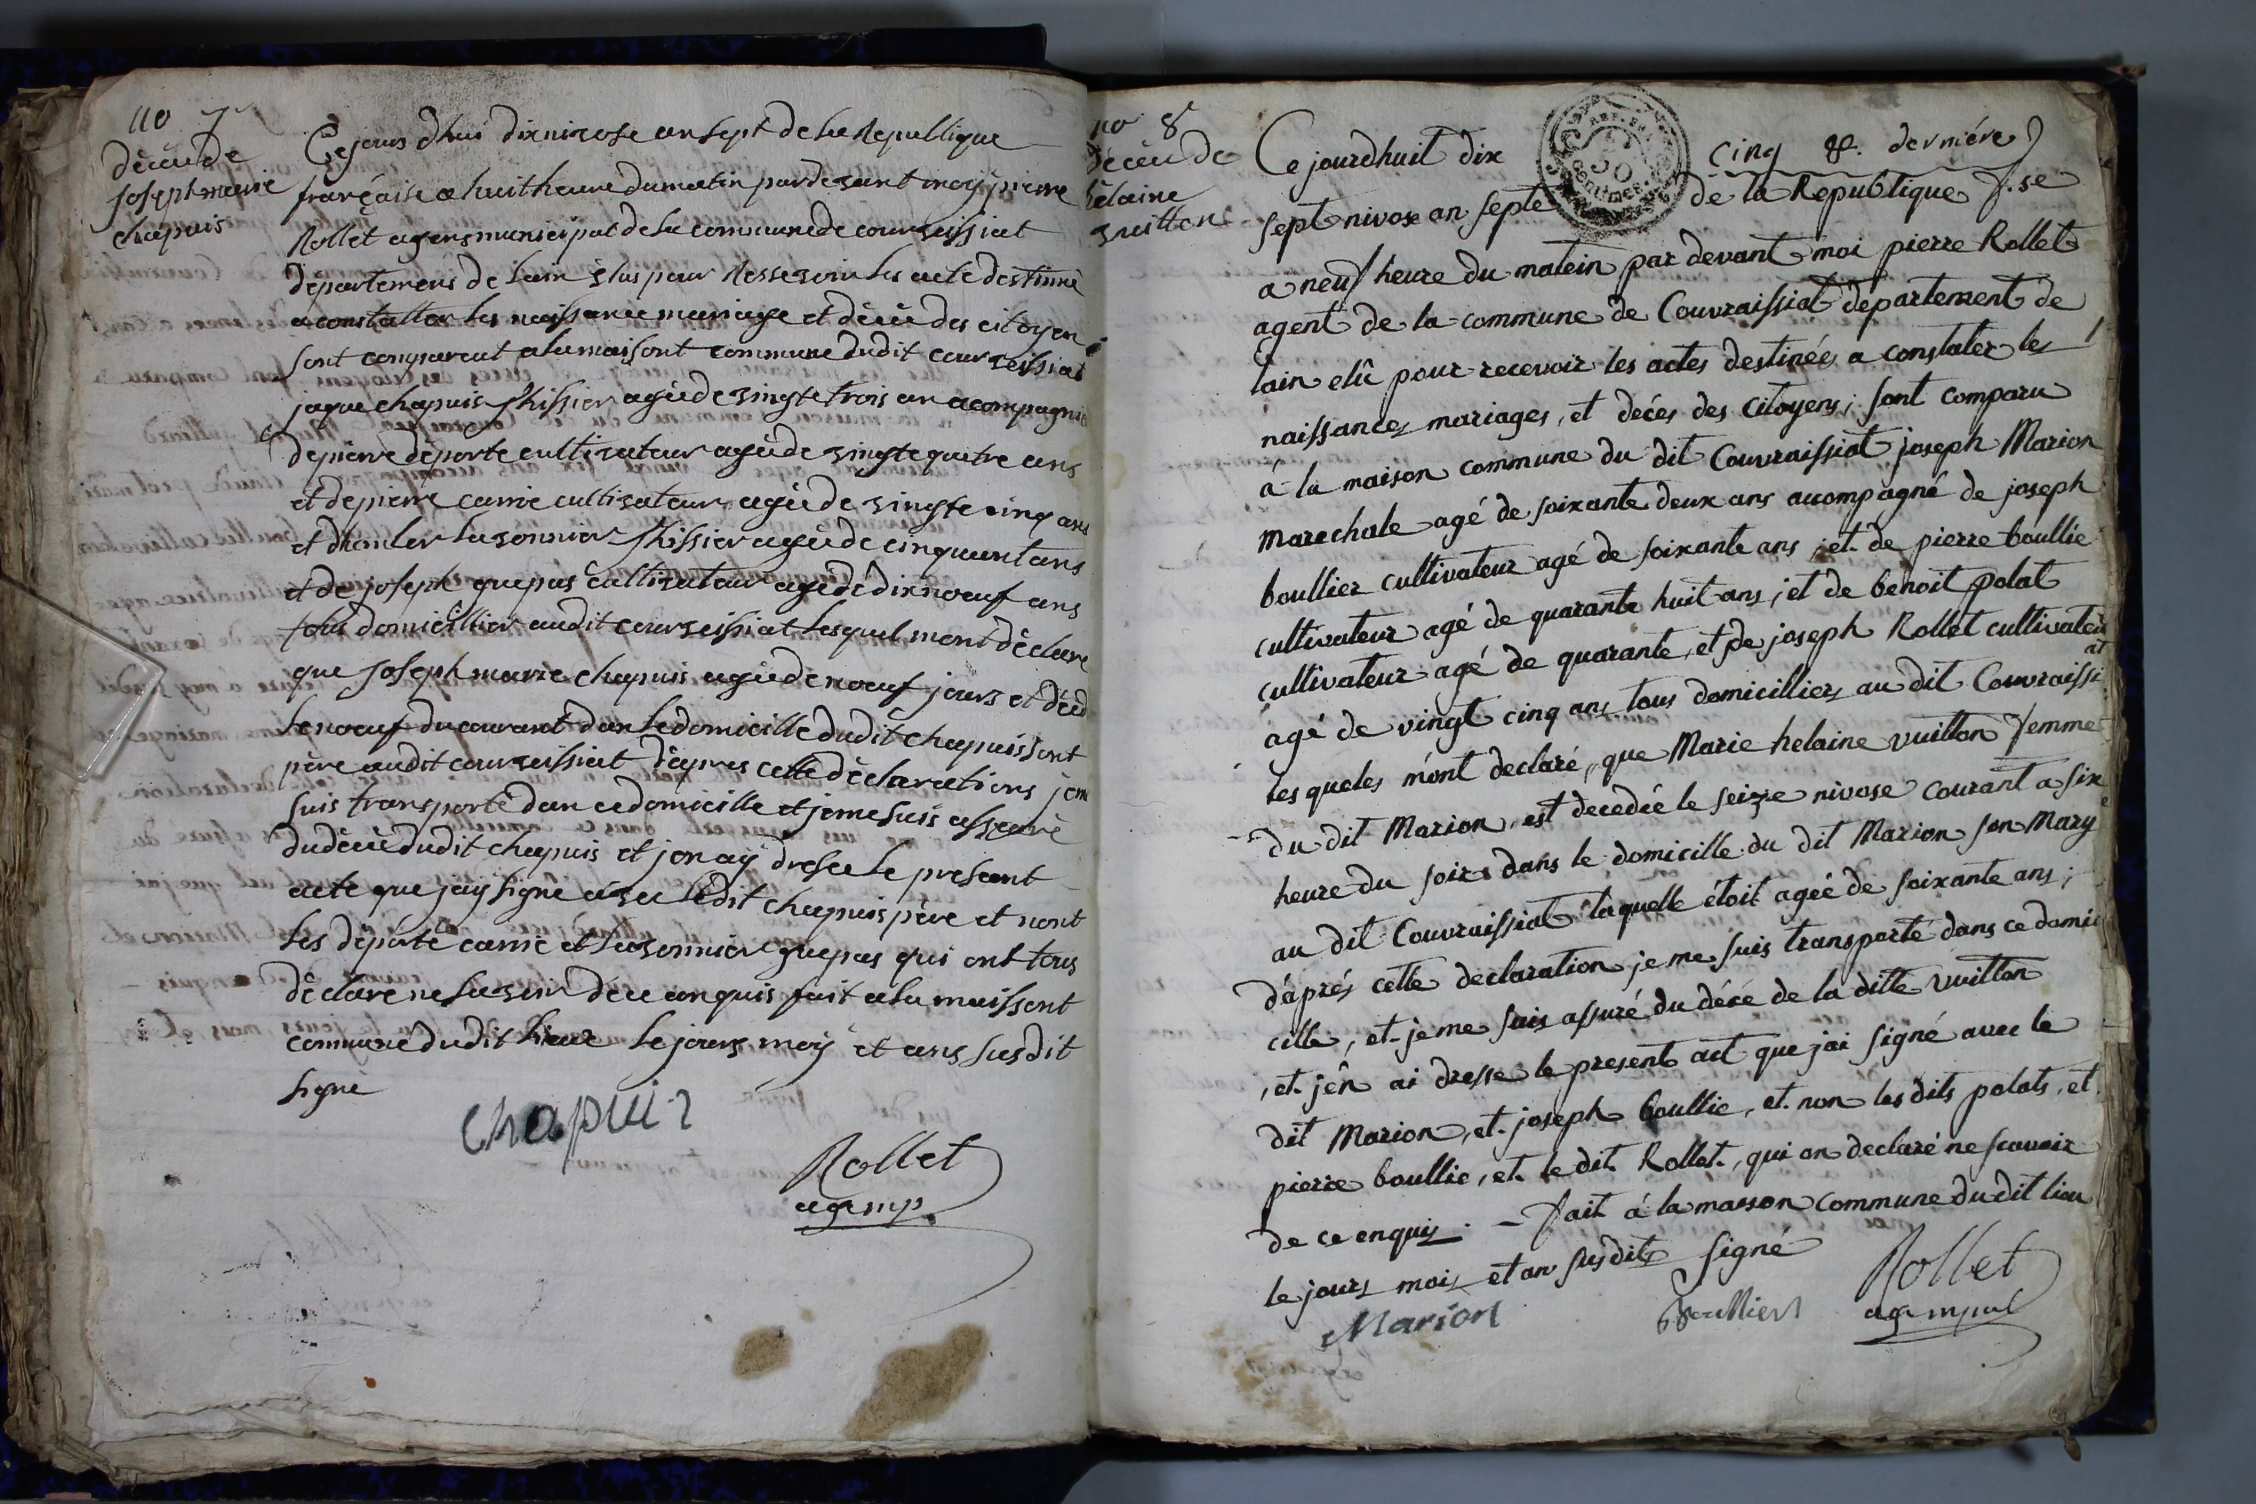 no 7
décè de
Joseph marie
chapuis
Cejours dhui dix nivose an sept de la Republique
française a huit heure du matin par devant moy pierre
Rollet agens municipal de la commune de courveissiat
département de lain élus pour Ressevoir les acte destinné
a constatter les naissance mariage et décè des citoyen
sont conpareut a la maisont commune dudit courveissiat
jaque chapuis thissier agé de vingte trois an acompagnie
de pierre déporte cultivateur agé de vingte quatre ans
et de pierre carrie cultivateur agé de vingte cinq ans
et lasonnier thissier agé de cinquant ans
et de joseph guepas cultivateur agé de dix noeuf ans
tous domicillier audit courveissiat lesquel mont déclare
que Joseph marie chapuis agé de noeuf jours et décd
le noeuf du courant dan le domicille dudit chapuis sont
père audit courveissiat dapres cette déclarations jem
suis transporté dan ce domicille et je me suis asseuré
du décè dudit chapuis et jen ay dresee le present
acte que jay signe avec ledit chapuis père et nont
les déporte carrie et lasonnier guepas qui ont tous
déclare ne savoir de ce anquis fait a la maissont
comune dudit lieux le jours moy et ans susdit
signé
chapuis
Rollet
ag mp.
no 8
Décéu de
hélaine
vuitton
cinq & derniére
Ce jourdhuit dix
sept nivose an septe de la Republique f.se
a neuf heure du matein par devant moi pierre Rollet
agent de la commune de Couvraissiat departement de
lain elû pour recevoir les actes destinées a constater les
naissances mariages, et decés des Citoyens; sont comparu
à la maison commune du dit Couvraissiat joseph Marion
marechale agé de soixante deux ans accompagné de joseph
boullier cultivateur agé de soixante ans; et de pierre boullie
cultivateur agé de quarante huit ans; et de benoit polat
cultivateur agé de quarante, et de joseph Rollet cultivateur
agé de vingt cinq ans tous domicilliers au dit Couvraissiat
les queles m'ont declaré, que Marie helaine vuitton femme
du dit Marion, est decedée le seize nivose courant a six
heure du soir dans le domicille du dit Marion son Mary
au dit Couvraissiat laquelle étoit agée de soixante ans;
d'aprés cette declaration je me suis transporté dans ce domi
cille, et je me suis assuré du décé de la ditte vuitton
, et j'en ai dresse le present act que jai signé avec le
dit Marion, et joseph boullie, et non les dits polats, et
pierre boullie, et le dit Rollet, qui on declaré ne scavoir
de ce enquis. - Fait à la maison commune du dit lieu
le jours mois et an susdits signé
Marion Boullier Rollet
ag mpal